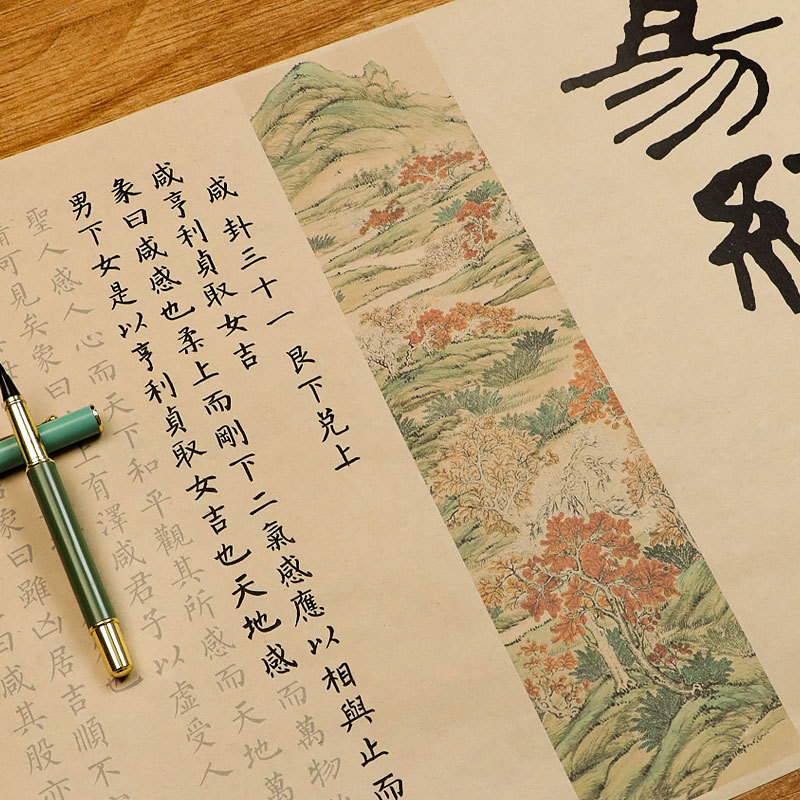 易
咸卦三十一 艮下兌上
咸亨利貞取女吉
彖曰咸感也柔上而剛下二氣感應以相與止而
男下女是以亨利貞取女吉也天地感而萬物
聖人感人心而天下和平觀其所感而天地萬
情可見矣象曰上有澤咸君子以虛受人
象曰雖凶居吉順不
曰咸其股亦